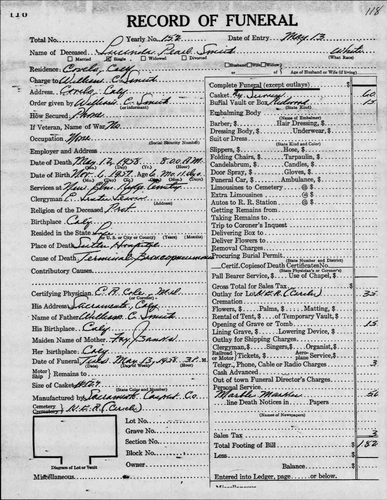 RECORD OF FUNERAL
118
Total No. Yearly No. 152 Date of Entry May 13
Name of Deceased Lucinda Pearl Smith White
Married Single Widowed Divorced (What Race)
Residence Covelo, Caly Husband Wife of Age of Husband or Wife (if living)
Charge to William C. Smith
Address Covelo, Caly
Order given by William C. Smith
How Secured Phone
If Veteran, Name of War No
Occupation None
(Social Security Number)
Employer and Address
Date of Death May 12, 1958 8:00 A.M.
Date of Birth Nov. 6, 1957 Age 6 Mo.
Services at
Clergyman
Religion of the Deceased Prot
Birthplace Caly
Resided in the State
Place of Death Sutter Hospital
Cause of Death Terminal Bronchopneumonia
Contributory Causes
Certifying Physician C. R. Cole, M.d.
His Address Sacramento, Caly
Name of Father William C. Smith
His Birthplace Caly
Maiden Name of Mother Fay
Her birthplace Caly
Date of Funeral Tues. May 13, 1958 3 P.M.
Motor Ship Remains to
Size of Casket
(State Color and Number)
Manufactured by Sacramento Casket Co.
Cemetery Crematory
Lot No.
Grave No.
Section No.
Block No.
Owner
Diagram of Lot or Vault
Miscellaneous
Complete Funeral (except outlays)
Casket 60
Burial Vault or Box Redwood 15
(State Kind)
Embalming Body
(State Kind)
Barber, $ Hair Dressing, $
Dressing Body, $ Underwear, $
Suit or Dress
Slippers, $ Hose, $
Folding Chairs, $ Tarpaulin, $
Candelabrum, $ Candles, $
Door Spray, $ Gloves, $
Funeral Car, $ Ambulance, $
Limousines to Cemetery @ $
Extra Limousines @ $
Autos to R. R. Station @ $
Getting Remains from
Taking Remains to
Trip to Coroner's Inquest
Delivering Box to
Deliver Flowers to
Removal Charges
Procuring Burial Permit
(State Number and District)
Certif. Copies of Death Certificates No.
(State Physician's or Coroner's)
Pall Bearer Service, $ Use of Chapel, $
Gross Total for Sales Tax $
Outlay for Lot 35
Cremation
Flowers, $ Palms, $ Matting, $
Rental of Tent, $ of Temporary Vault, $
Opening of Grave or Tomb 15
Lining Grave, $ Lowering Device, $
Outlay for Shipping Charges
Clergyman, $ Singers, $ Organist, $
Railroad or Motor Tickets, $ Aeroplane Service, $
Telegr., Phone, Cable or Radio Charges 3
Cash Advanced
Out of town Funeral Director's Charges
Personal Services
Marble Marker
line Death Notices in Papers
Sales Tax
Total Footing of Bill $ 152
Less
Balance $
Entered into Ledger, page or below
Miscellaneous